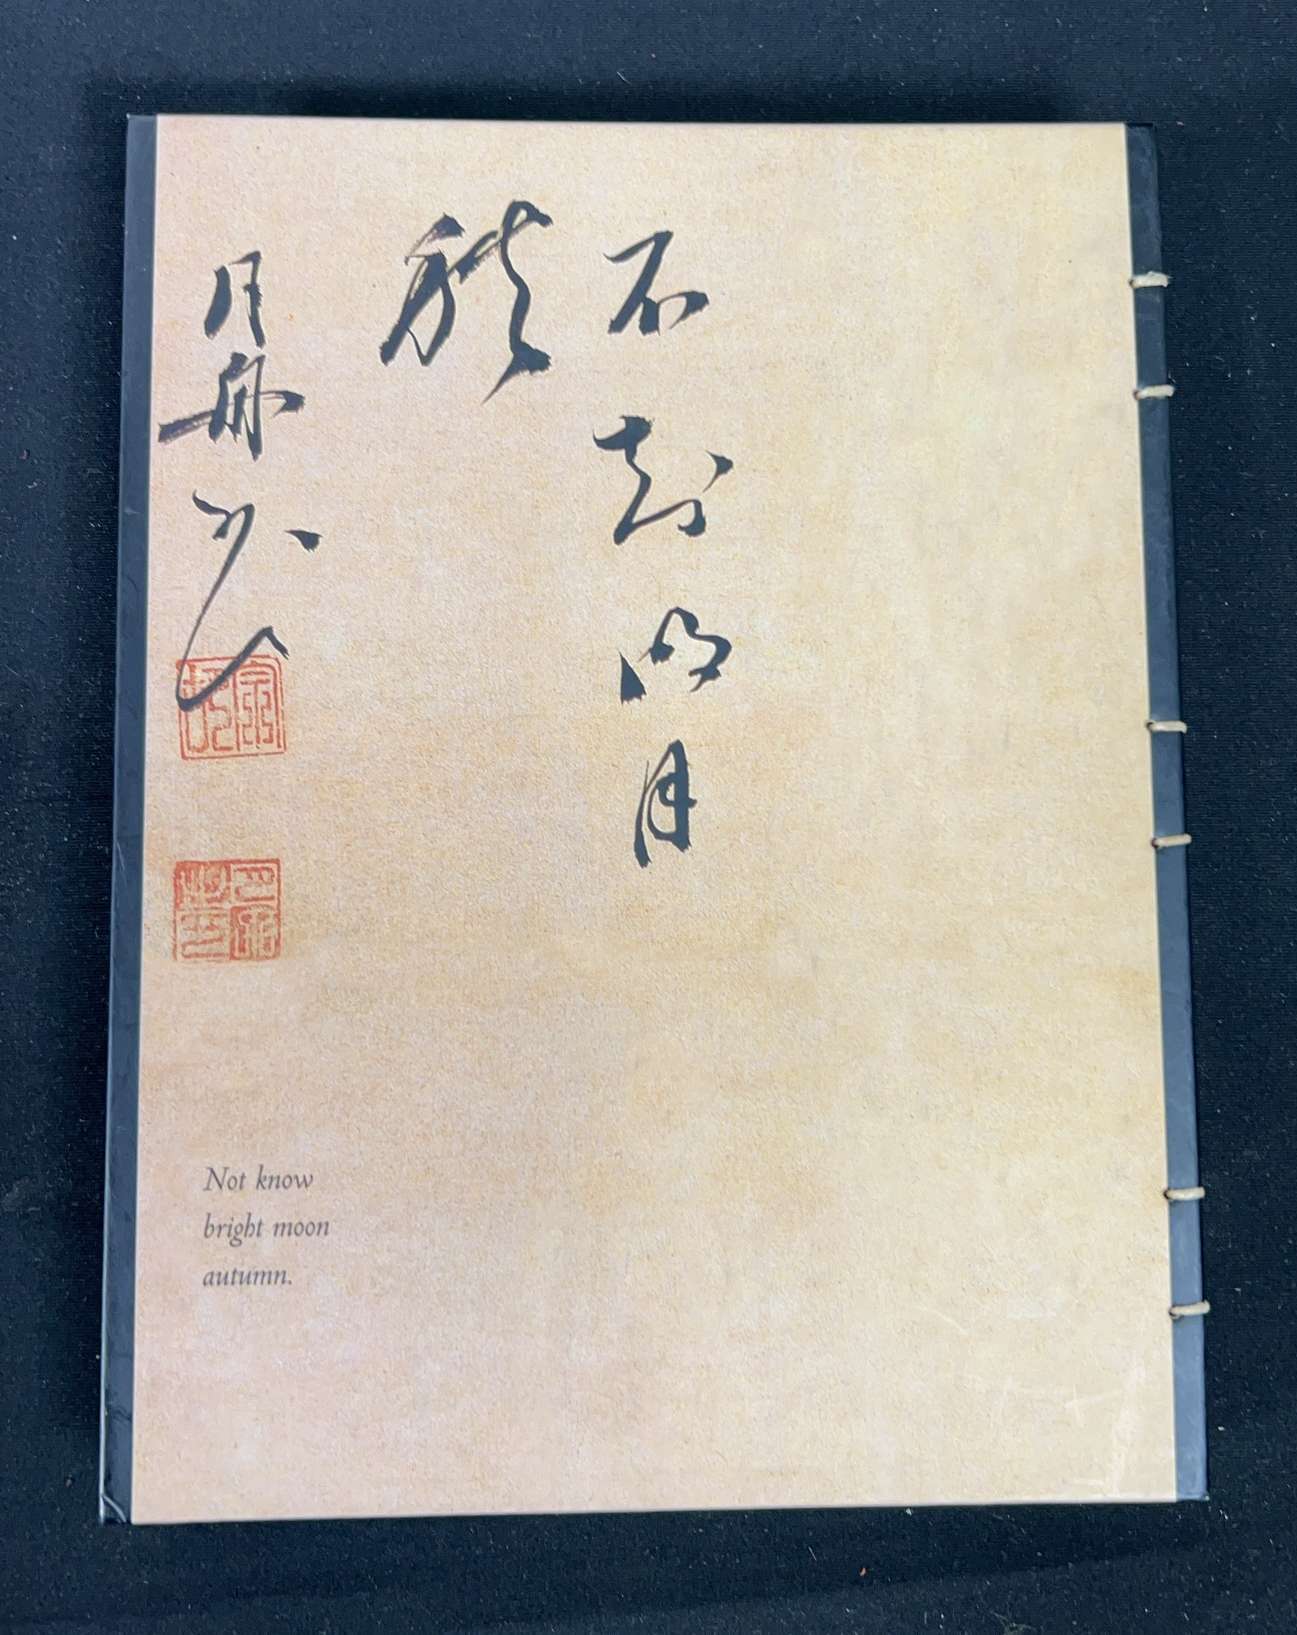 不知明月
秋
月舟
Not know
bright moon
autumn.